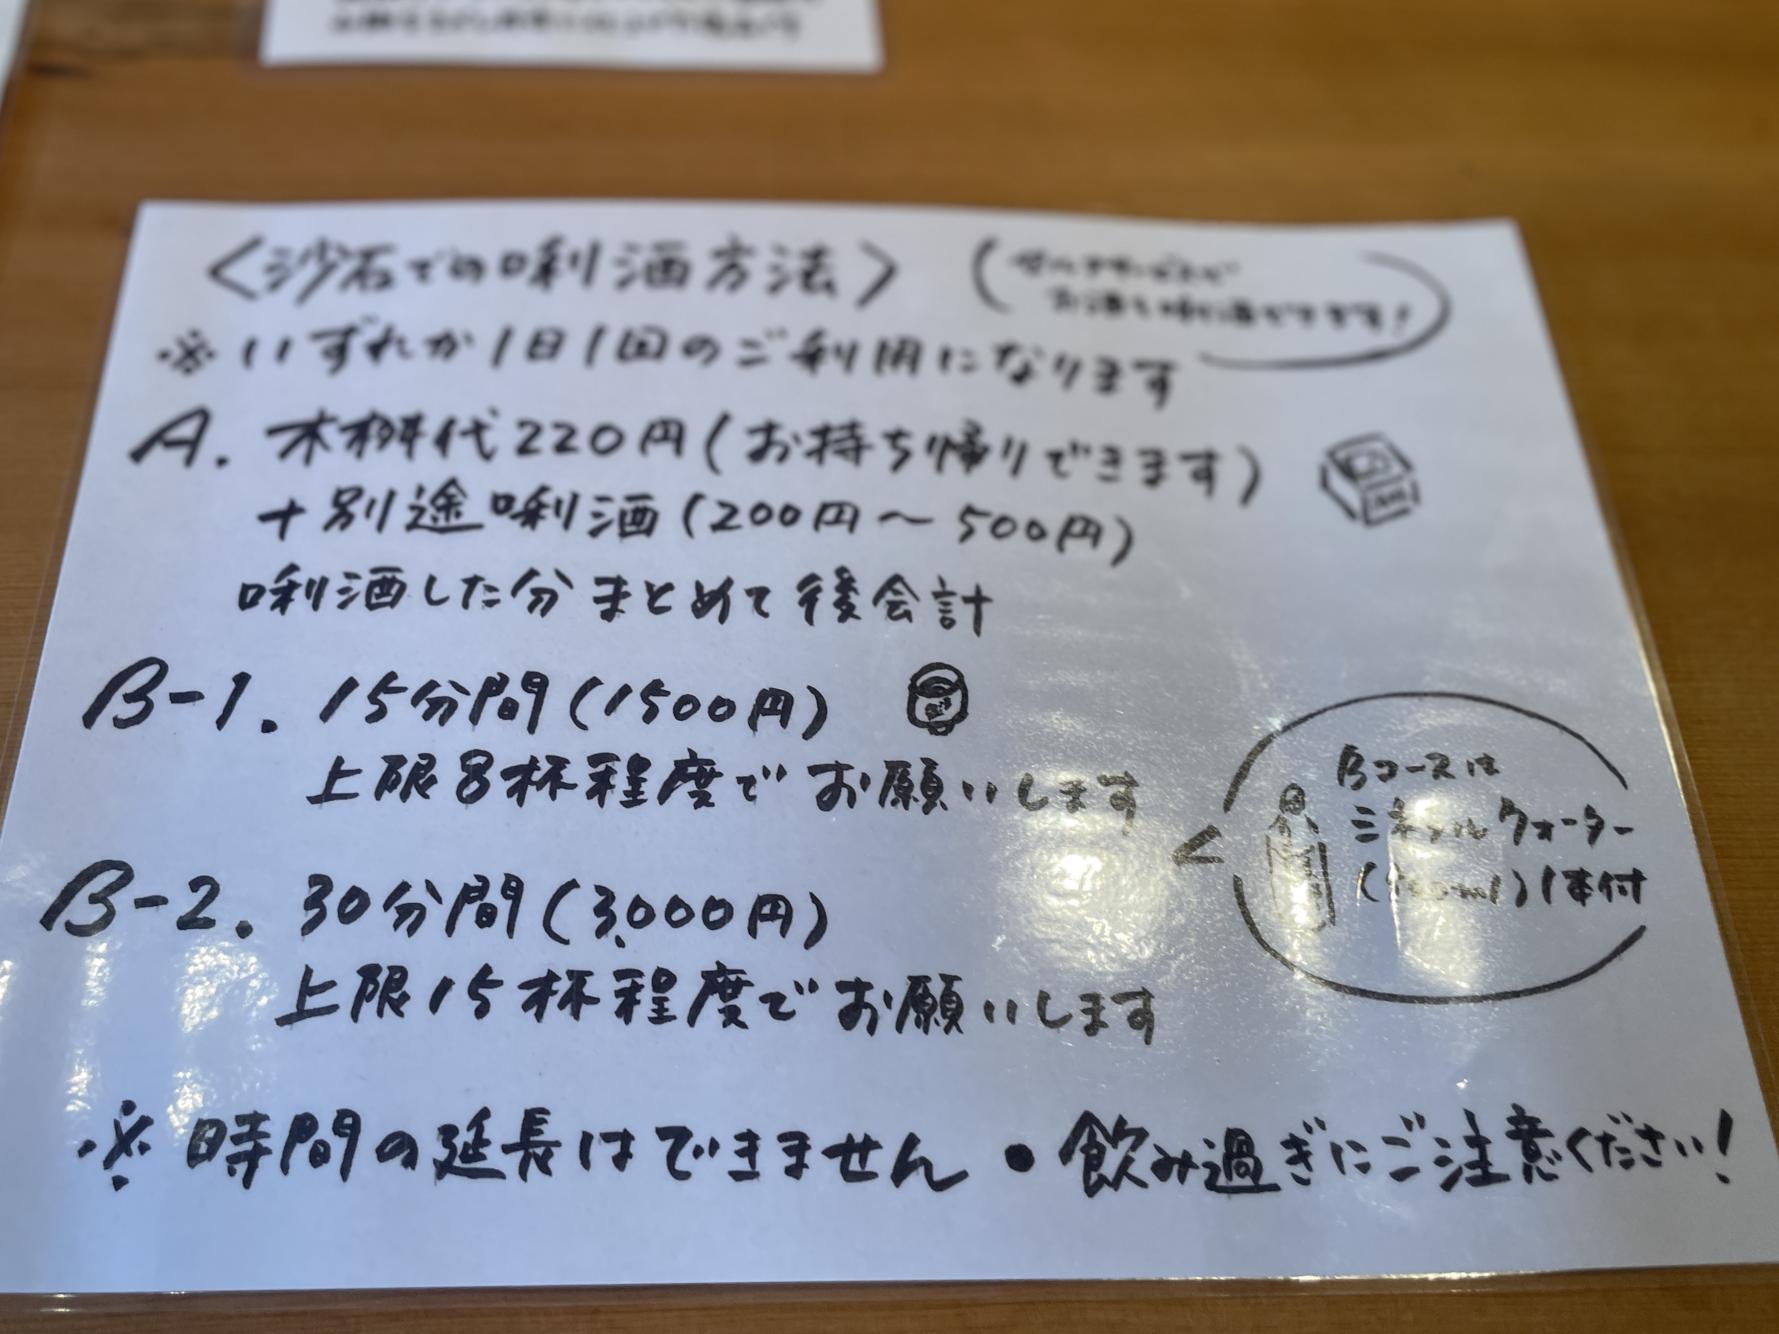 〈沙石での唎酒方法〉
お酒を唎酒できます!
※いずれか1日1回のご利用になります
A. 木桝代220円(お持ち帰りできます)
+別途唎酒(200円〜500円)
唎酒した分まとめて後会計
B-1. 15分間(1500円)
上限8杯程度でお願いします
Bコースは
ミネラルウォーター
1本付
B-2. 30分間(3,000円)
上限15杯程度でお願いします
※時間の延長はできません・飲み過ぎにご注意ください!